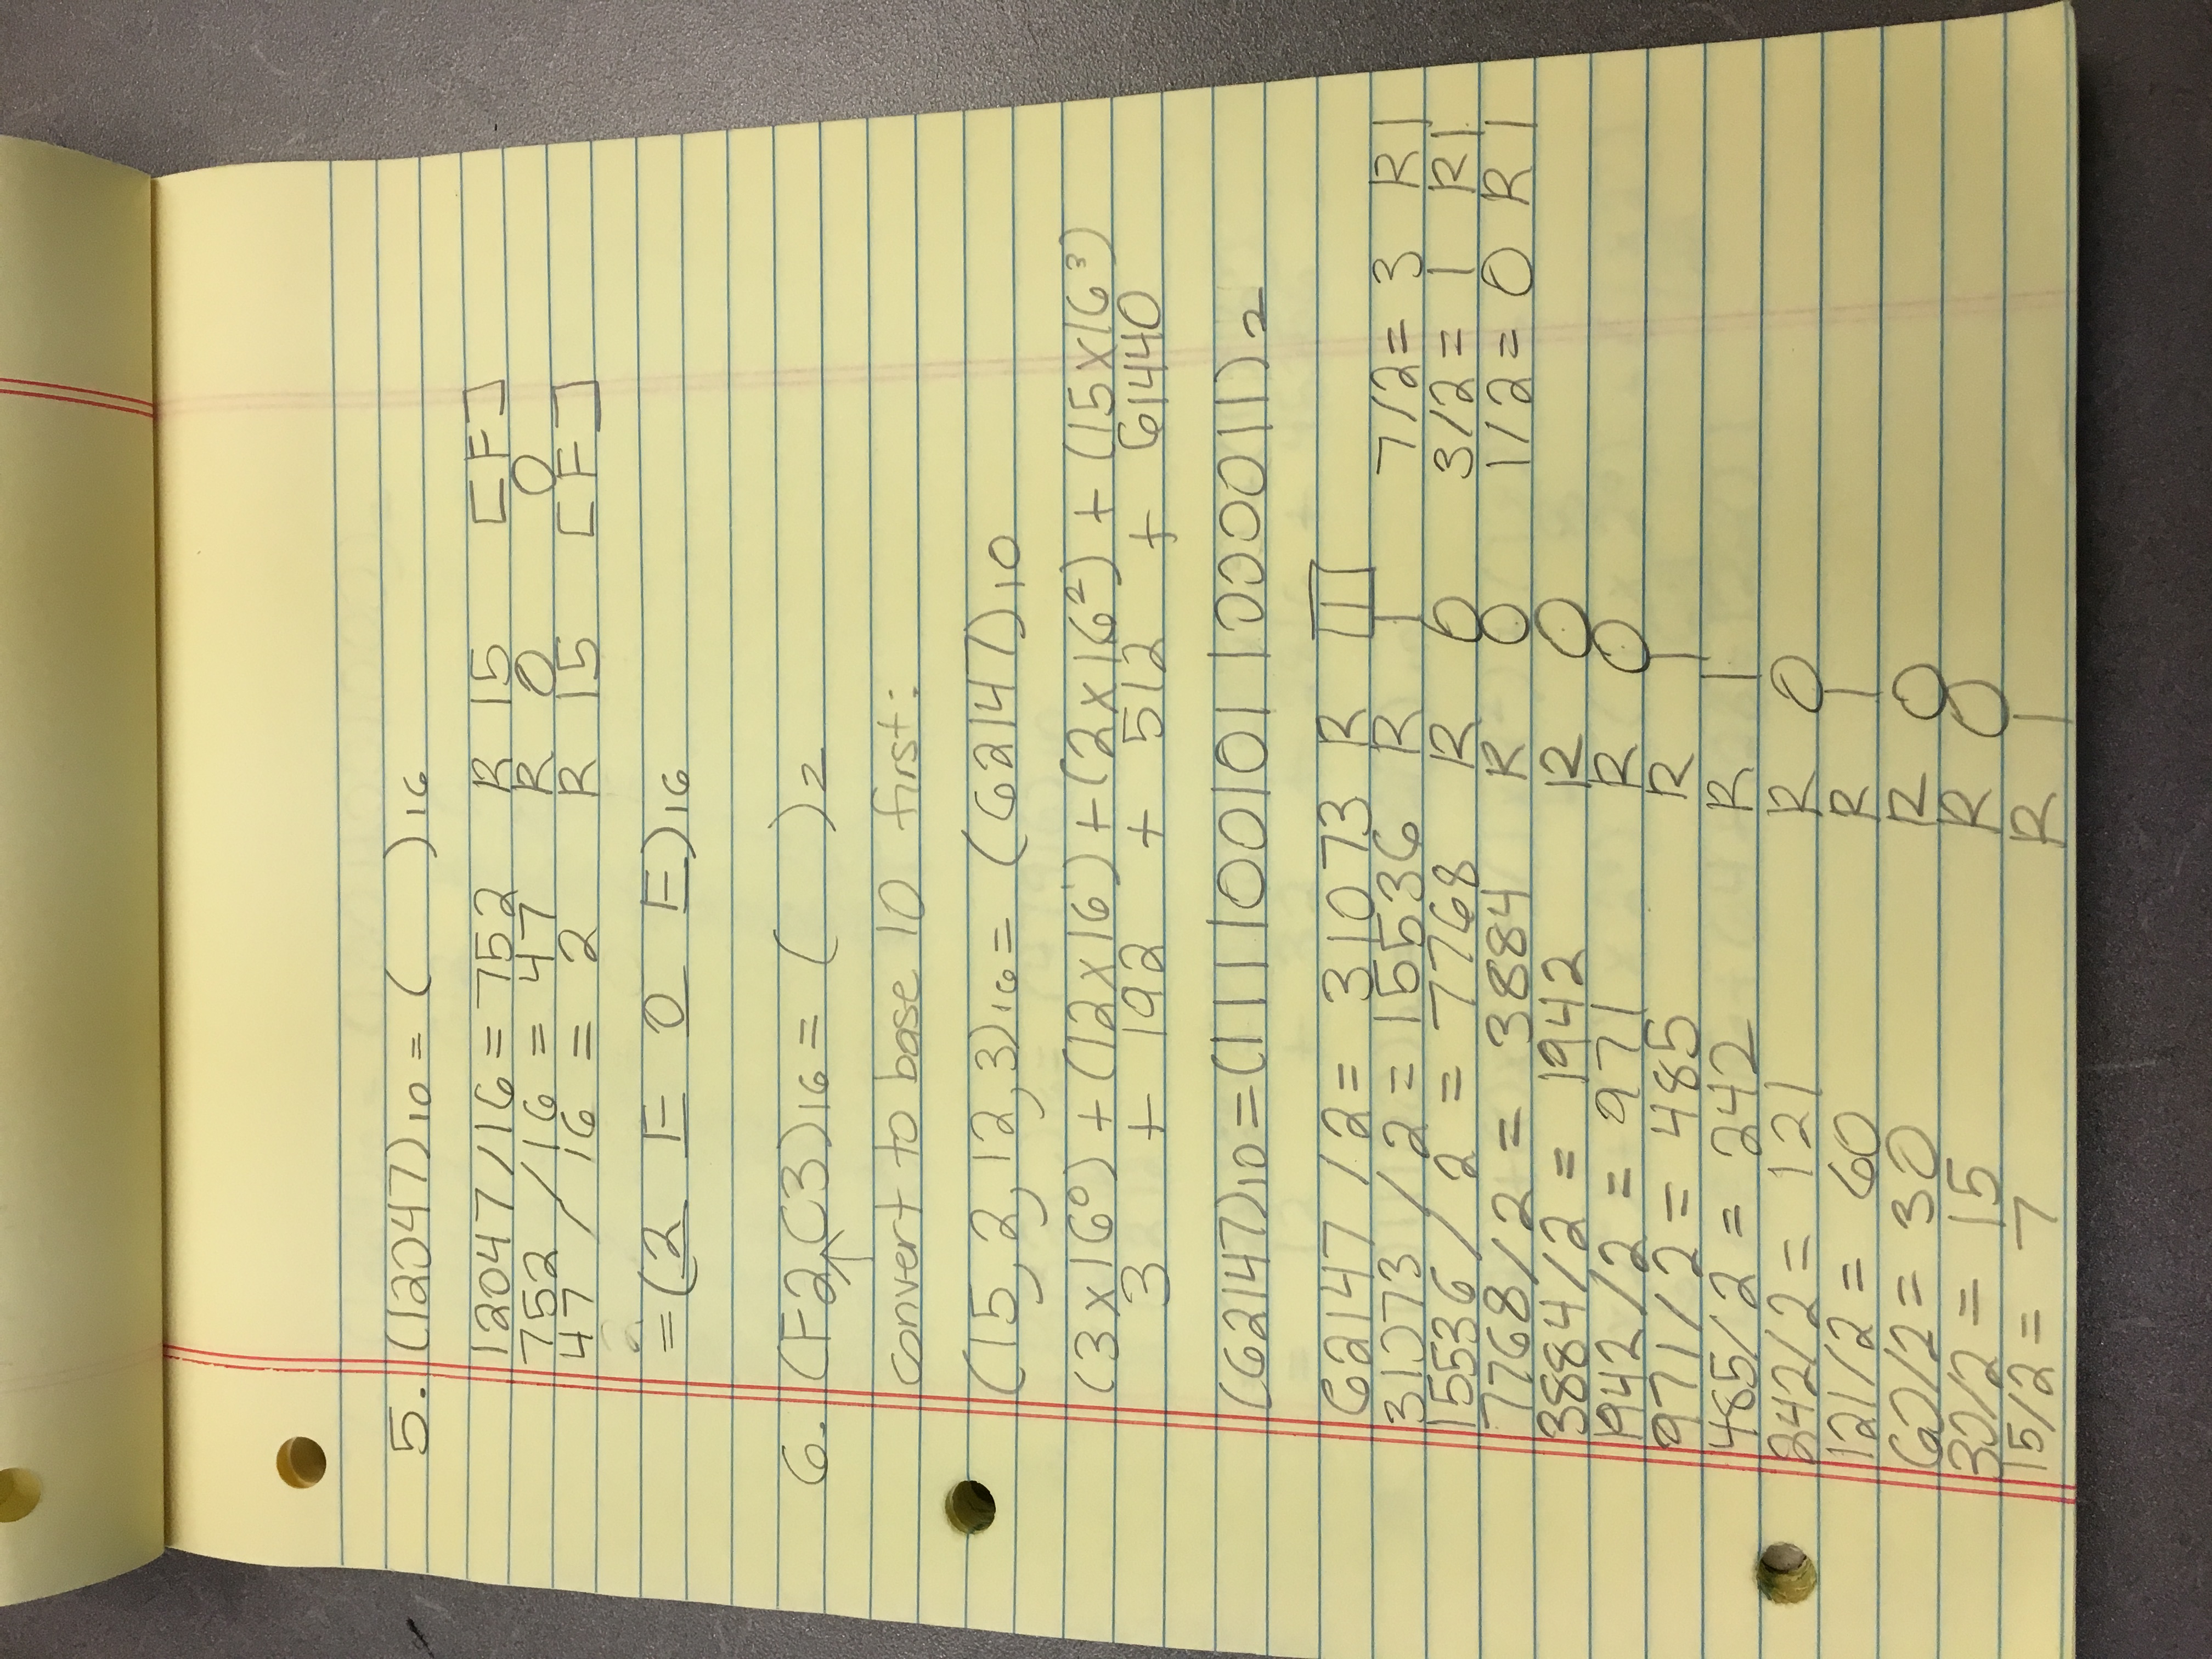 5. (12047)10 = (    )16
12047/16 = 752 R 15 [F]
752 /16 = 47 R 0 0
47 / 16 = 2 R 15 [F]
= (2 F 0 F)16
6. (F2C3)16 = (    )2
convert to base 10 first:
(15, 2, 12, 3)16 = (62147)10
(3x16⁰) + (12x16¹) + (2x16²) + (15x16³)
3 + 192 + 512 + 61440
(62147)10 = (1111001011000011)2
62147 /2 = 31073 R 1
31073 /2 = 15536 R 1 7/2 = 3 R1
15536 / 2 = 7768 R 0 3/2 = 1 R1
7768/2 = 3884 R 0 1/2 = 0 R1
3884/2 = 1942 R 0
1942/2 = 971 R 0
971/2 = 485 R 1
485/2 = 242 R 1
242/2 = 121 R 0
121/2 = 60 R 1
60/2 = 30 R 0
30/2 = 15 R 0
15/2 = 7 R 1